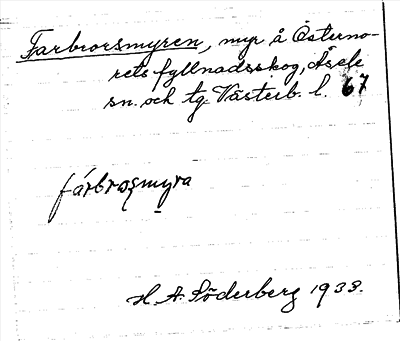 Farbrorsmyren, myr å Österno-
rets fyllnadsskog, Åsele
sn. och tg. Västerb. l. 67
fárbroʂmyra
H. A. Söderberg 1933.